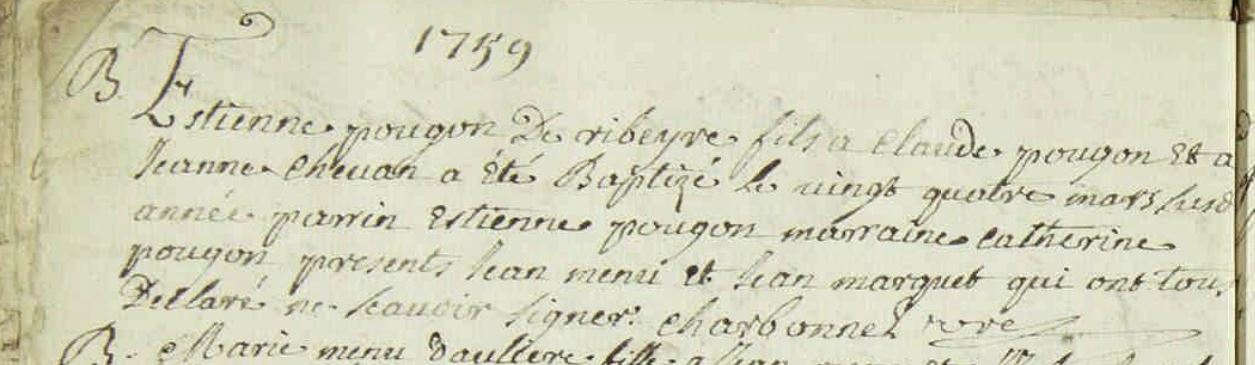 1759
B. Estienne pougon De ribeyre fils a Claude pougon Et a
Jeanne Chevan a été Baptizé le vingt quatre mars susd
année parrin Estienne pougon marraine Catherine
pougon presents Jean menu et Jean marquet qui ont tous
Declaré ne scauoir signer. Charbonnel
B. Marie menu fille a Jean